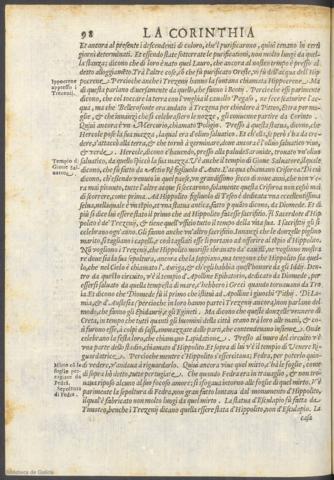 98 LA CORINTHIA
Et ancora al presente i descendenti di coloro, che'l purificarono, quivi cenano in certi
giorni determinati. Et essendo state sotterrate le purificationi, non molto lungi da quel-
la stanza; dicono che di loro è nato quel Lauro, che ancora al nostro tempo è presso al
detto alloggiamento. Trà l'altre cose, cõ che fù purificato Oreste, vi fù dell'acqua dell'Hippo-
crene. Percioche anche i Trezenij hanno la fontana chiamata Hippocrene. Ma
di questa parlano diversamente da quello, che fanno i Beotij. Percioche essi parimente
dicono, che col toccar la terra con l'unghia il cavallo Pegaso, ne fece scaturire l'ac-
qua, ma che Bellerofonte era andato à Trezena per chiedere à Pitteo, Etra per mo-
glie, & che innanzi ch'ei la celebrasse le nozze, gli convenne partire da Corinto.
Quivi ancora è un Mercurio, chiamato Poligio. Presso à questa statua, dicono, che
Hercole posò la sua mazza, laqual era d'olivo salvatico.
& verde. Hercole, dicono l'havendo, presso alla palude Saronide, trovato un'olivo
salvatico, da quello spiccò la sua mazza. Vi è anche il tempio di Giove Salvatore, ilquale
dicono, che fù fatto da Aetio Rè figliuolo d'Anta. L'acqua chiamano Crisoroa. Di cui
dicono, ch'essendo venuta in quel paese, una grandissimo secco di nove anni, che non ve-
ra mai piouuto, tutte l'altre acque si seccarono, solamente questa Crisoroa non cessò mai
di scorrere, come prima. Ad Hippolito figliuolo di Teseo è dedicata una eccellentissima
selva, nella quale è un tempio, & una statua antica, fatto il quale dicono, da Diomede. Et di
più si dice lui essere stato il primo che ad Hippolito facesse sacrificio. Il Sacerdote d'Hip-
polito è de' Trezenij, & tiene quell'ufficio tutto'l tempo della vita sua. I sacrificij gli si
celebrano ogn'anno. Gli fanno anche un'altro sacrificio. Innanzi che le donzelle piglino
marito, si tagliano i capelli, & così tagliati gli portano ad offerire al tempio d'Hippolito.
Nè vogliono i Trezenij, che Hippolito morisse stracinato da' cavalli, nè vogliono mostra-
re dove sia la sua sepoltura, ancora che la sappiano, ma tengono che Hippolito sia quel-
lo, che nel Cielo è chiamato l'auriga, & ch'egli habbia quest'honore da gli Iddij. Den-
tro da questo circuito, v'è il tempio d'Apolline Epibaterio, dedicato da Diomede, per
essersi salvato da quella tempesta di mare, c'hebbero i Greci quando tornavano da Tro-
ia. Et dicono che Diomede fù il primo che istituì ad Apolline i giuochi Pithij. Di La-
mia, & d'Auxesia (perche in loro hanno parte i Trezenij ancora) non parlano del mo-
do, che fanno gli Epidaurij & gli Egineti. Ma dicono che quelle donzelle vennero di
Creta, in tempo che tutti quanti gli huomini della città erano trà loro alle mani, & co-
sì furono esse, à colpi di sassi, ammazzate dalle parti, che contendevano insieme. Onde
celebrano la festa loro, che chiamano Lapidatione. Presso al muro del circuito v'è
una parte dello stadio, chiamata ad Hippolito. Et sopra di lui v'è il tempio di Venere Ri-
guardatrice. Percioche mentre ch'Hippolito s'essercitava, Fedra, per poterlo quin-
di vedere, v'andava à riguardarlo. Quivi ancora vive quel mirto, c'hà le foglie, come
di sopra hò detto, tutte pertugiate. Che quando Fedra era in travaglio, & non tro-
vava riposo alcuno al suo focoso amore; si sfogava intorno alle foglie di quel mirto. V'è
parimente la sepoltura di Fedra, non gran fatto lontana dal monumento d'Hippolito,
il qual è fabricato non molto lungi da quel mirto. La statua d'Esculapio fù fatta da
Timoteo, benche i Trezenij dicano quella essere statua d'Hippolito, non d'Esculapio. La
casa
Hippocrene
appresso i
Trezenij.
Tempio di
Giove Sal-
vatore.
Mirto cõ le
foglie per-
tugiate da
Fedra.
Sepoltura
di Fedra.
Biblioteca de Galicia